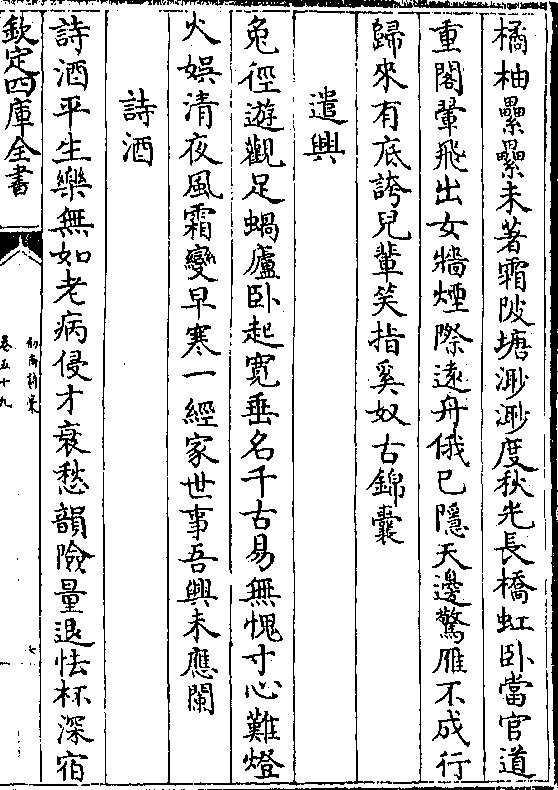 橘柚纍纍未著霜陂塘渺渺度秋光長橋虹卧當官道
重閣翬飛出女牆煙際遠舟俄已隱天邊驚雁不成行
歸來有底誇兒輩笑指奚奴古錦囊
遣興
兔徑遊觀足蝸廬卧起寛垂名千古易無愧寸心難燈
火娯清夜風霜變早寒一經家世事吾興未應闌
詩酒
詩酒平生樂無如老病侵才衰愁韻險量退怯杯深宿
欽定四庫全書
卷五十九
七